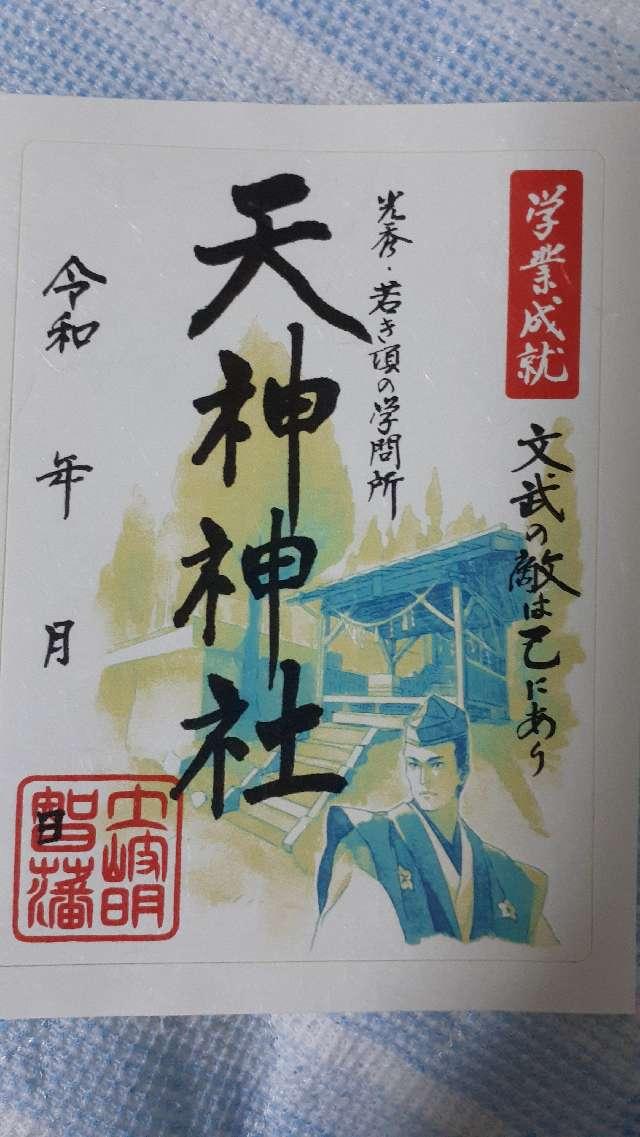 学業成就
文武の敵は己にあり
光秀・若き頃の学問所
天神神社
令和 年 月 日
土岐明智藩